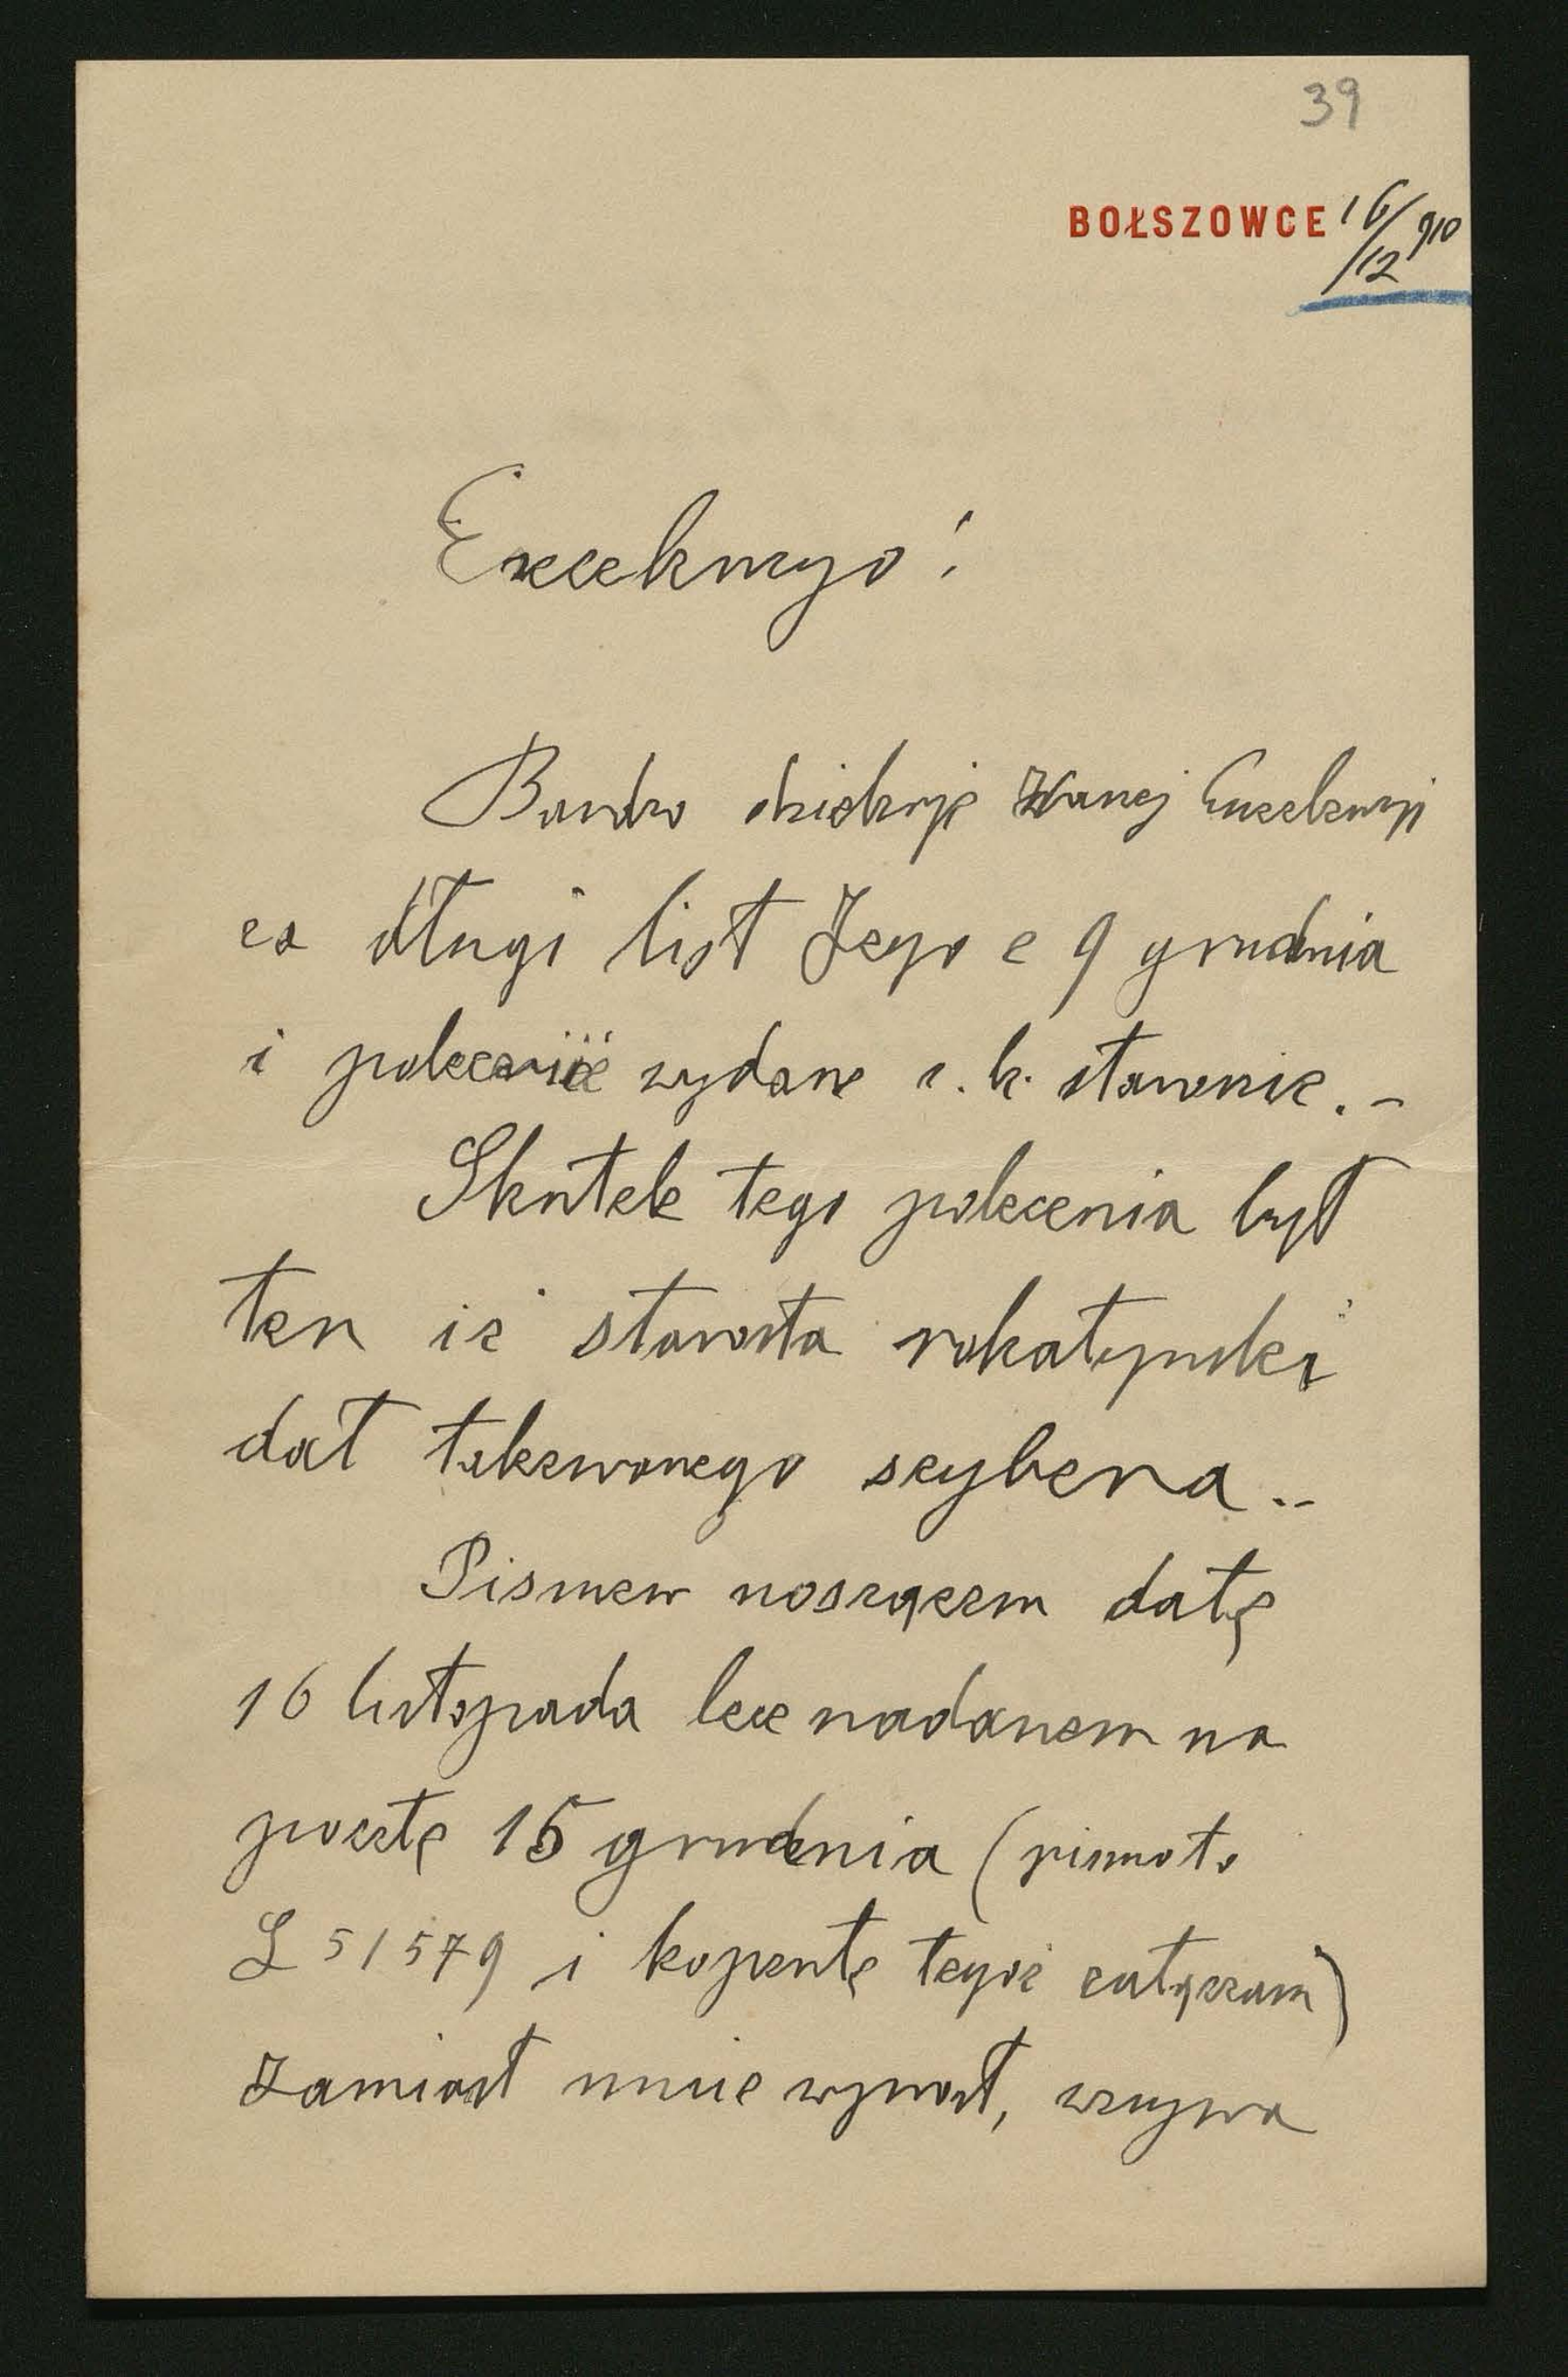 39
BOŁSZOWCE 16/12 910
Excelencyo!
Bardzo dziękuję Waszej Excelencyi
za długi list Jego z 9 grudnia
i polecenie wydane c. k. starośćie.-
Skutek tego polecenia był
ten iż starosta rohatyński
dał takzwanego szybera..
Pismem noszącem datę
16 listopada lecz nadanem na
pocztę 15 grudnia (pismo to
L 51579 i kopertę tegoż załączam)
zamiast mnie wprost, wzywa